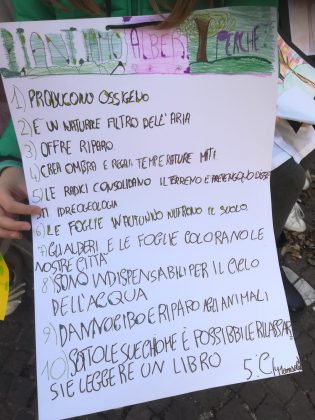 PIANTIAMO ALBERI PERCHÈ
1) PRODUCONO OSSIGENO
2) È UN NATURALE FILTRO DELL'ARIA
3) OFFRE RIPARO
4) CREA OMBRA E REGALA TEMPERATURE MITI
5) LE RADICI CONSOLIDANO IL TERRENO E PREVENGONO
IDREOGEOLOGIA
6) LE FOGLIE IN AUTUNNO NUTRONO IL SUOLO
7) GLI ALBERI E LE FOGLIE COLORANO LE
NOSTRE CITTÀ
8) SONO INDISPENSABILI PER IL CICLO
DELL'ACQUA
9) DANNO CIBO E RIPARO AGLI ANIMALI
10) SOTTO LE SUE CHIOME È POSSIBBILE RILASSAR
SI E LEGGERE UN LIBRO 5°C